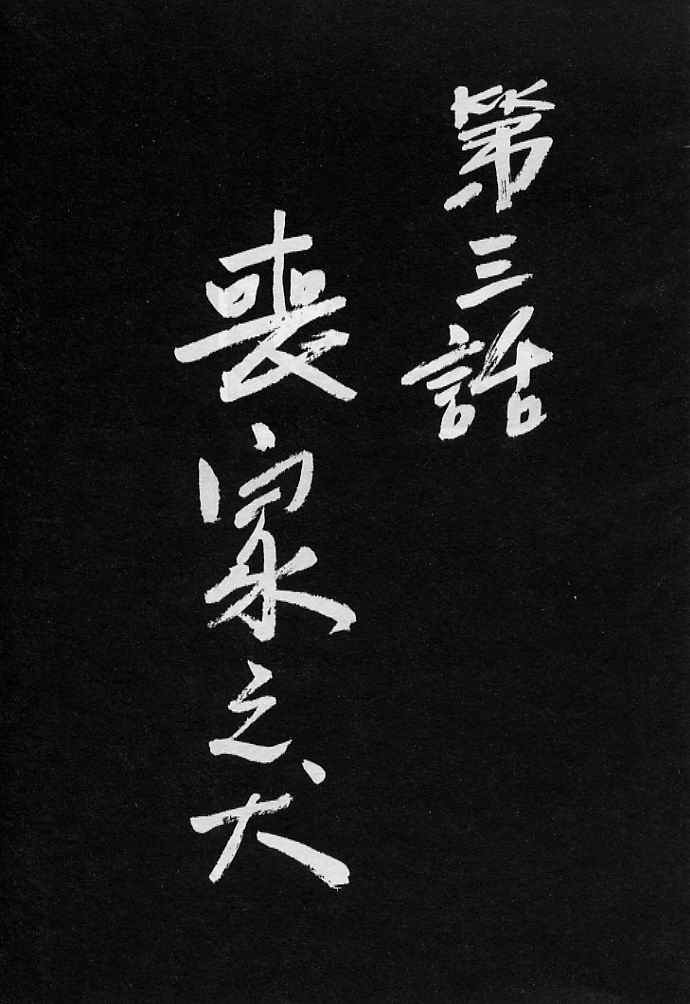 第三話
喪家之犬